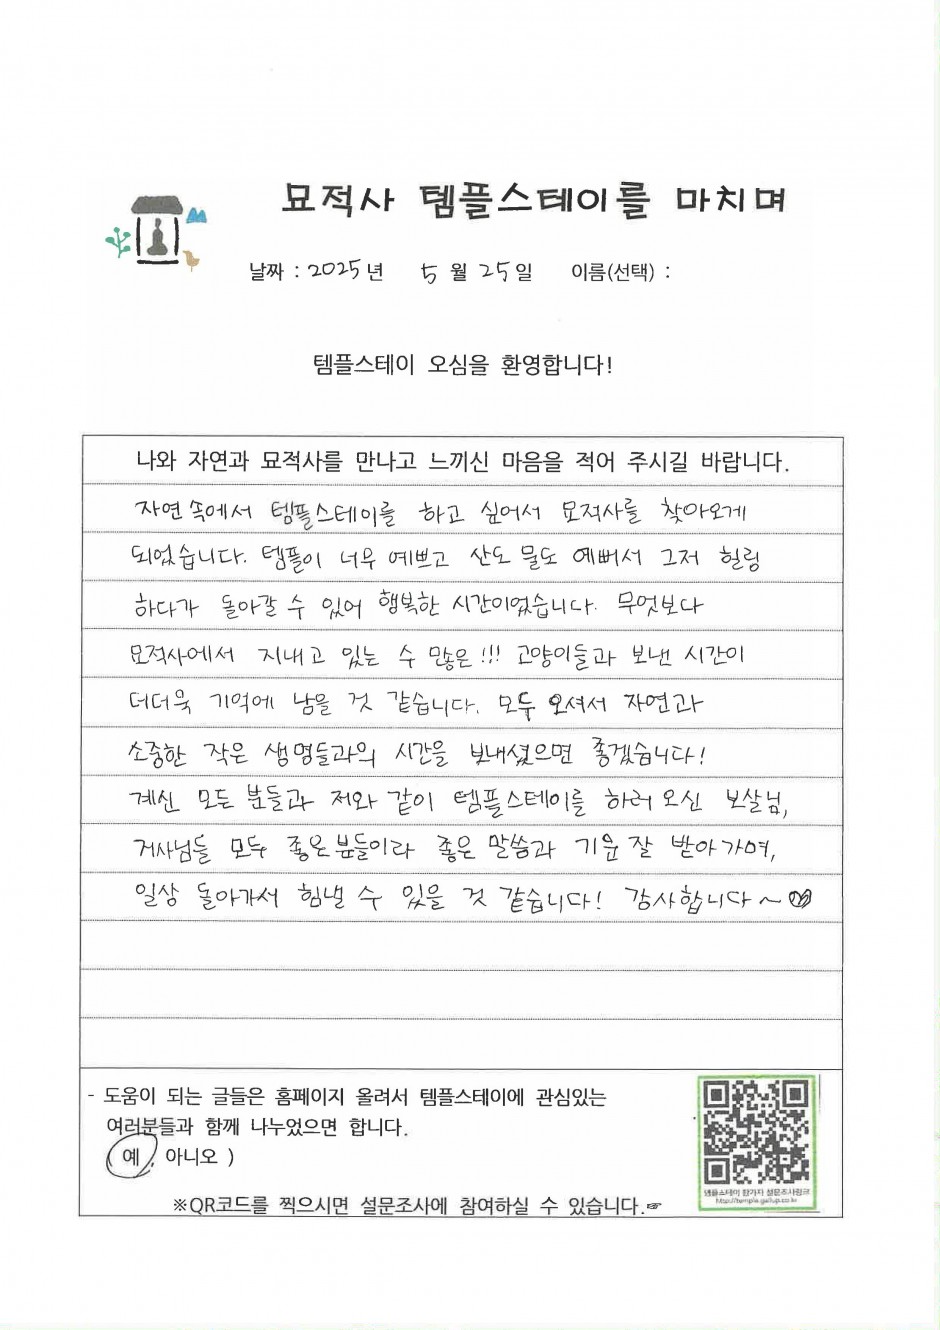 묘적사 템플스테이를 마치며
날짜 : 2025년 5월 25일 이름(선택) :
템플스테이 오심을 환영합니다!
나와 자연과 묘적사를 만나고 느끼신 마음을 적어 주시길 바랍니다.
자연 속에서 템플스테이를 하고 싶어서 묘적사를 찾아오게
되었습니다. 템플이 너무 예쁘고 산도 물도 예뻐서 그저 힐링
하다가 돌아갈 수 있어 행복한 시간이었습니다. 무엇보다
묘적사에서 지내고 있는 수 많은!!! 고양이들과 보낸 시간이
더더욱 기억에 남을 것 같습니다. 모두 오셔서 자연과
소중한 작은 생명들과의 시간을 보내셨으면 좋겠습니다!
계신 모든 분들과 저와 같이 템플스테이를 하러 오신 보살님,
거사님들 모두 좋은 분들이라 좋은 말씀과 기운 잘 받아가며,
일상 돌아가서 힘낼 수 있을 것 같습니다! 감사합니다~♡
- 도움이 되는 글들은 홈페이지 올려서 템플스테이에 관심있는
여러분들과 함께 나누었으면 합니다.
( 예 , 아니오 )
템플스테이 참가자 설문조사링크
http://temple.gallup.co.kr
※QR코드를 찍으시면 설문조사에 참여하실 수 있습니다.☞